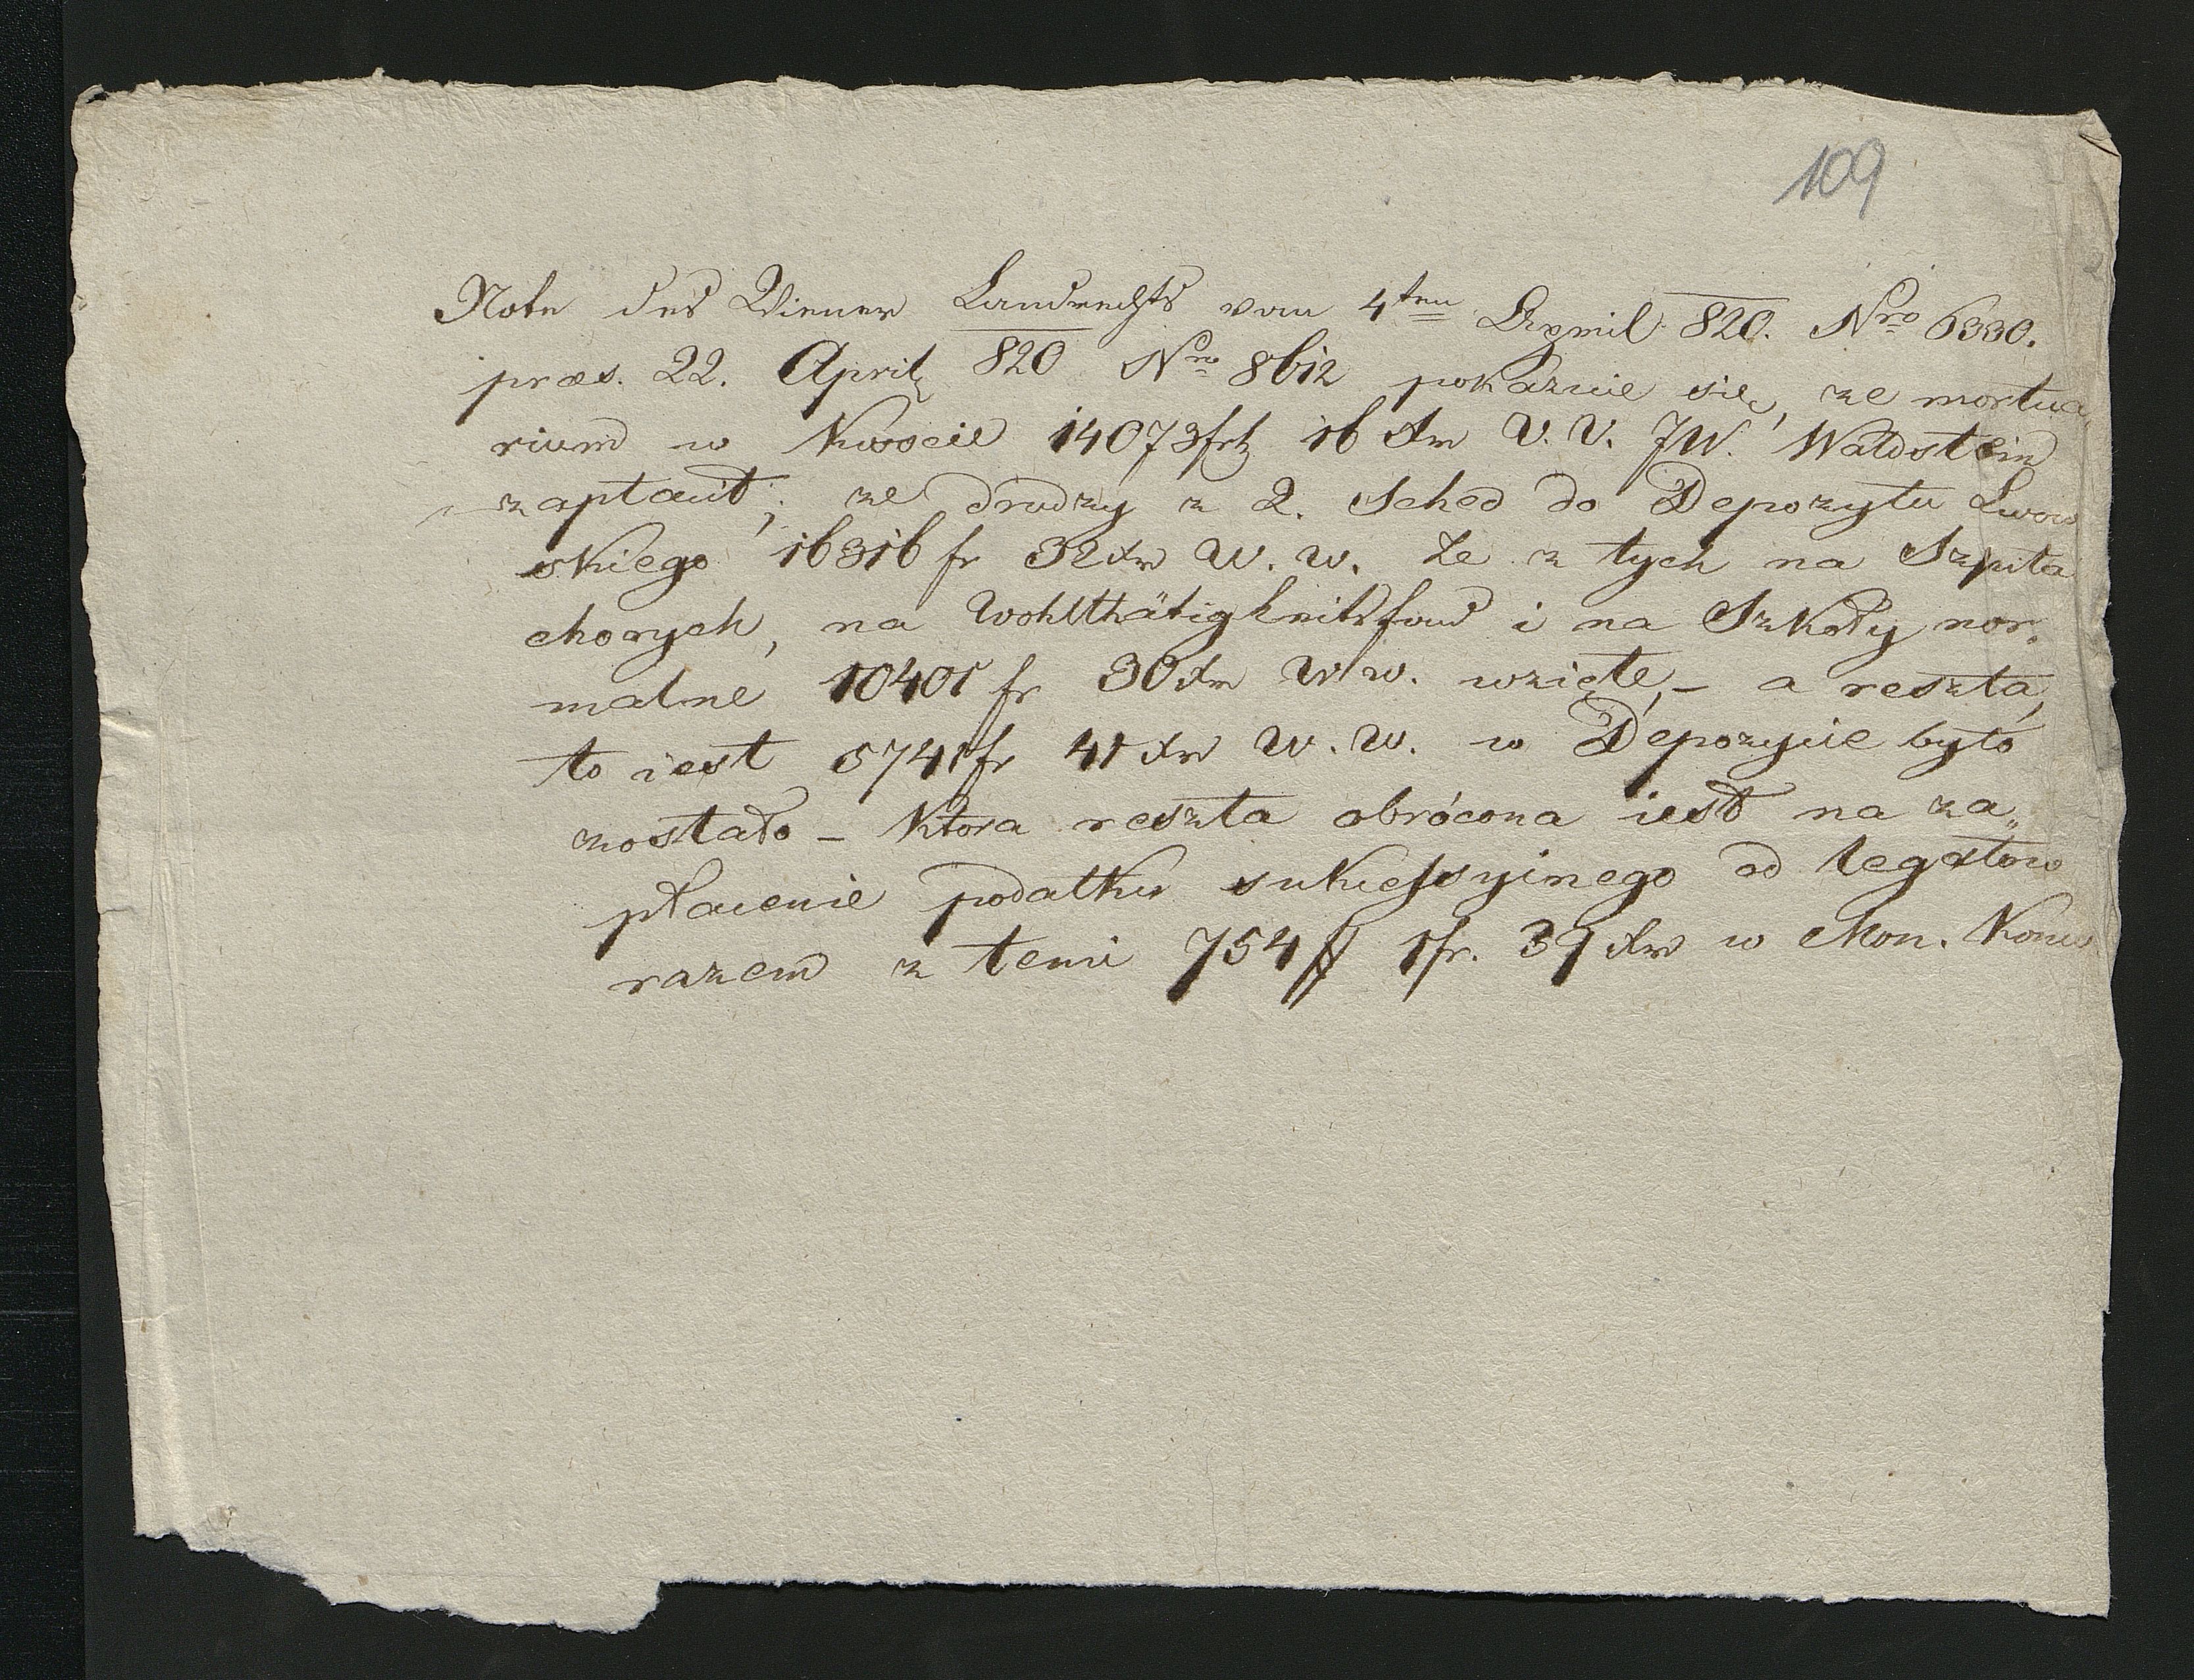 109
Note des Wiener Landrechts vom 4ten April 820. Nro 6330.
præs. 22. April 820 Nro 8612 pokazuie się, ze mortua
rium w kwocie 14073 fr 16 xr V. V. JW. Waldstein
zapłacił; ze drudzy z 2. Sched do Depozytu Lwow
skiego 16316 fr 32 xr W. w. ze z tych na Szpital
chorych, na Wohlthätigkeitsfond i na Szkoły nor,
malne 10401 fr 30 xr W w. wzięte, – a reszta,
to iest 5741 fr 41 xr W. W. w Depozycie było
zostało – ktora reszta obrócona iest na za„
płacenie podatku sukcessyinego od legatow
razem z temi 754 ff 1 fr. 39 xr w Mon. Konw